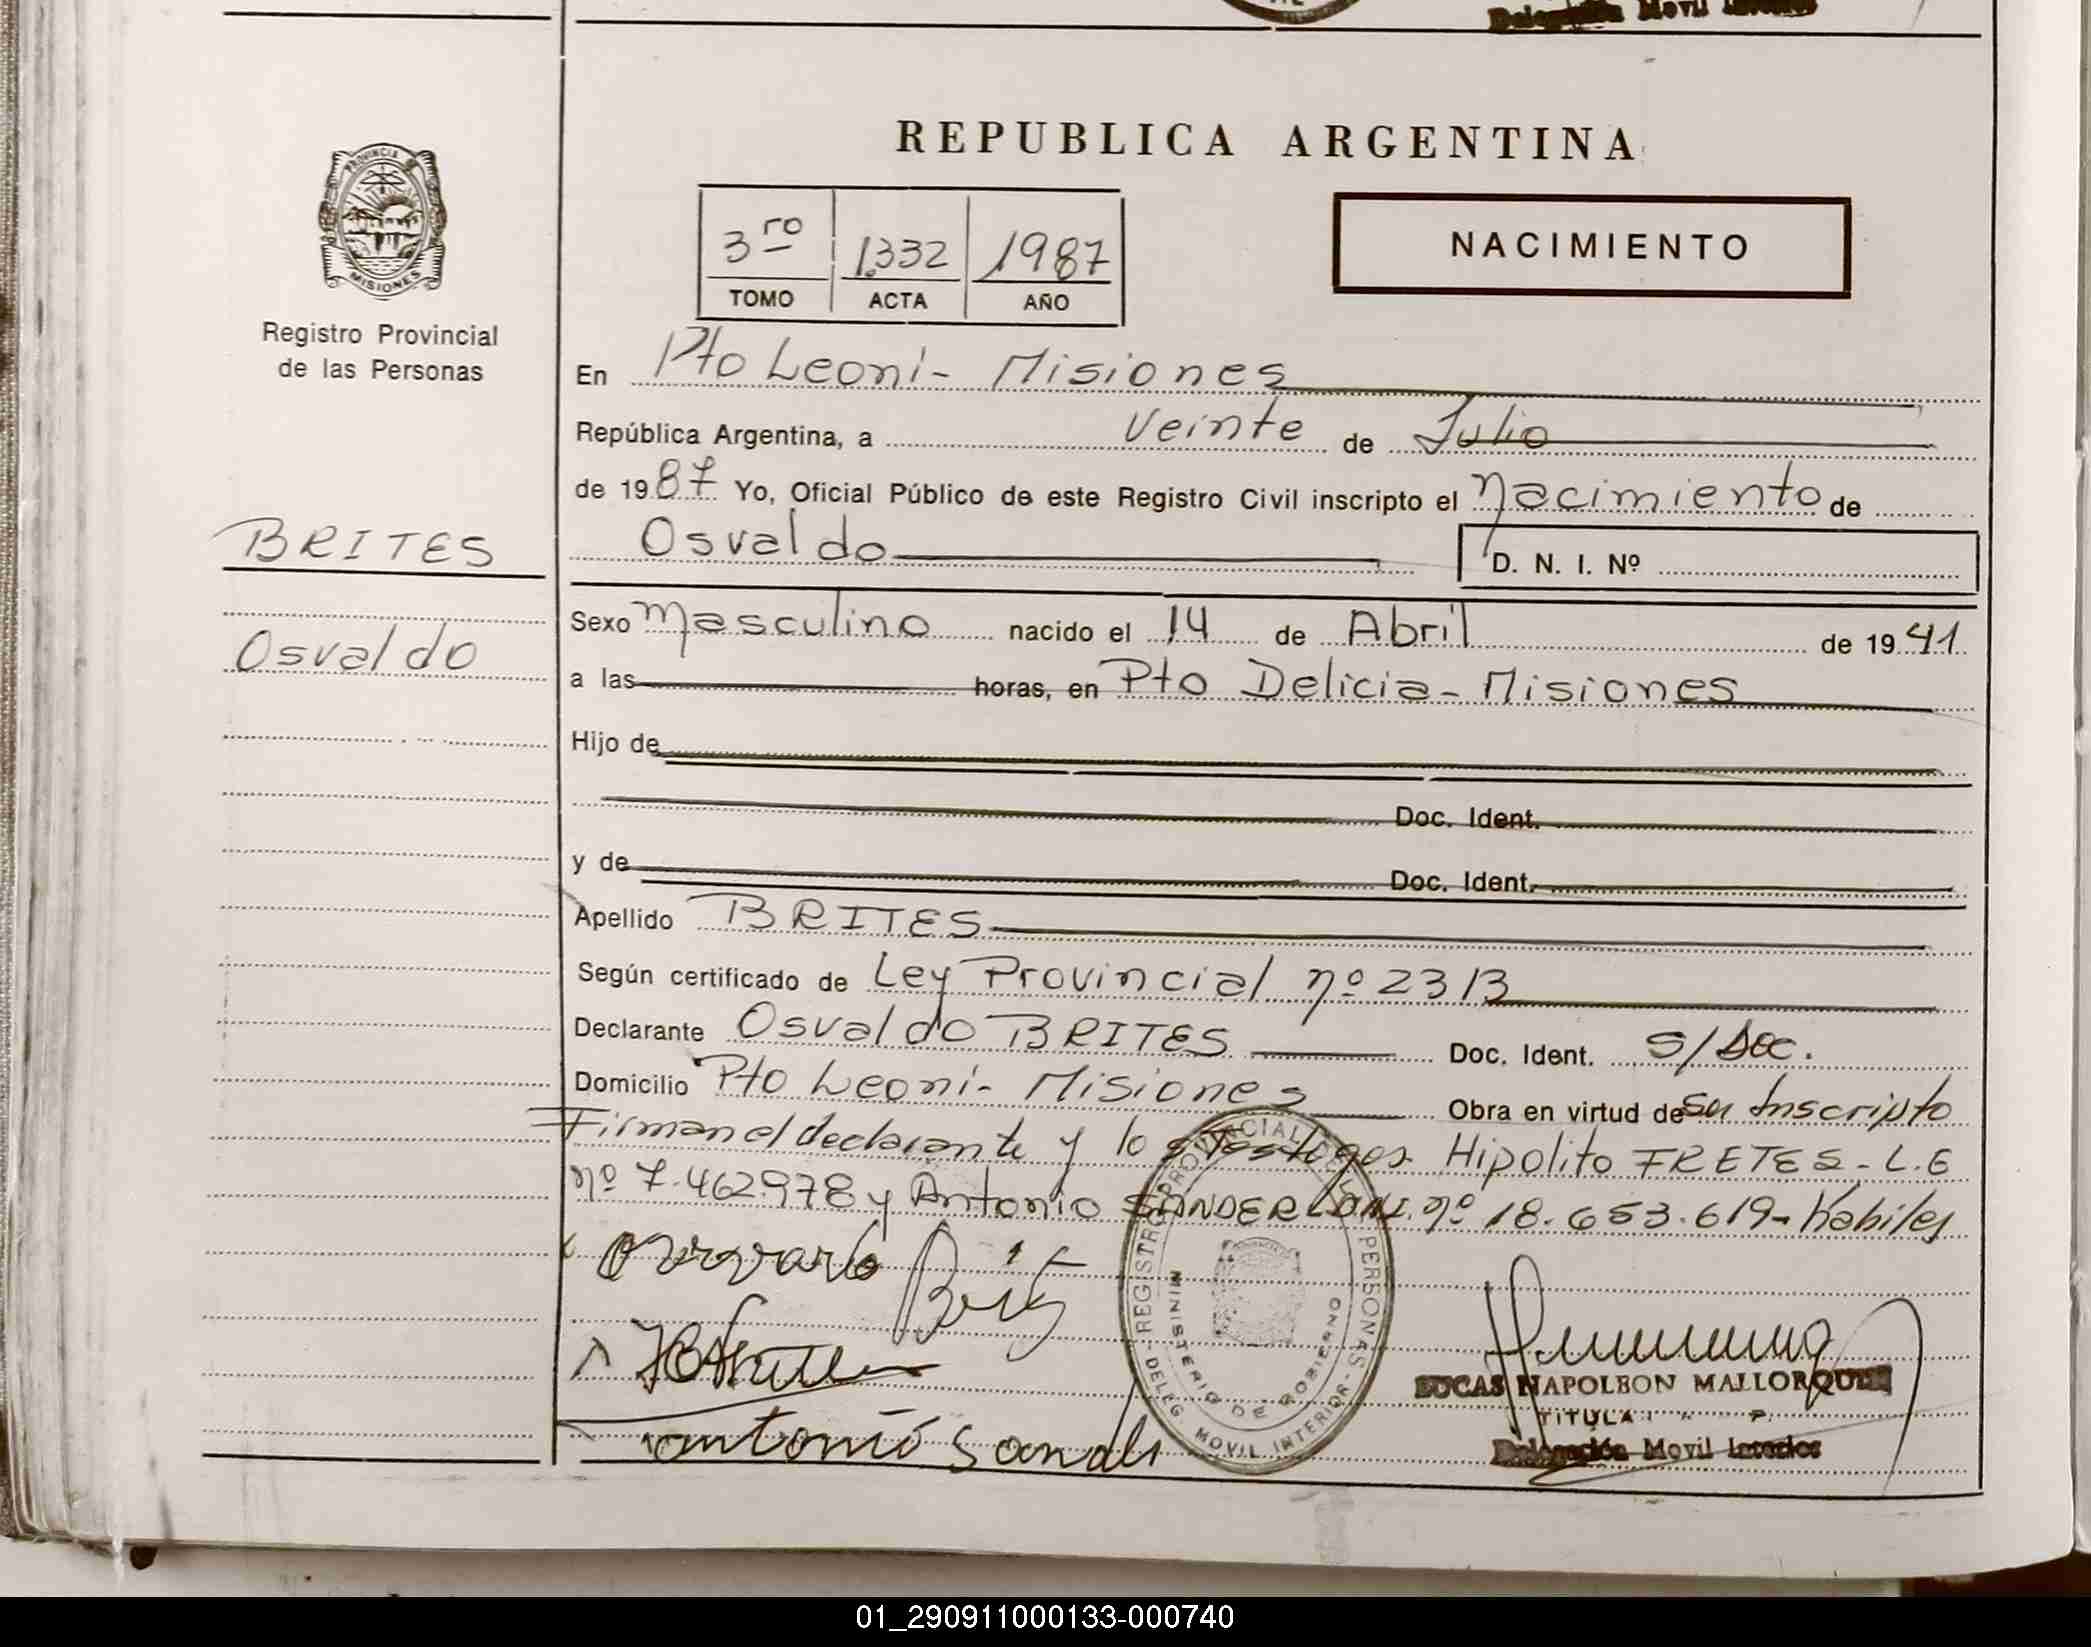 Delegación Movil Interior
REPUBLICA ARGENTINA
PROVINCIA DE MISIONES
Registro Provincial
de las Personas
3ro 1.332 1987
TOMO ACTA AÑO
NACIMIENTO
En Pto Leoni - Misiones
República Argentina, a veinte de Julio
de 1987 Yo, Oficial Público de este Registro Civil inscripto el Nacimiento de
Osvaldo
D. N. I. Nº
BRITES
Osvaldo
Sexo Masculino nacido el 14 de Abril de 1941
a las horas, en Pto Delicia - Misiones
Hijo de
Doc. Ident.
y de Doc. Ident.
Apellido BRITES
Según certificado de Ley Provincial nº 2313
Declarante Osvaldo BRITES Doc. Ident. s/Doc.
Domicilio Pto Leoni - Misiones Obra en virtud de su Inscripto
Firman el declarante y los testigos Hipolito FRETES - L.E
nº 7.462.978 y Antonio SANDER nº 18.653.619 - habiles
REGISTRO PROVINCIAL DE LAS PERSONAS - DELEG. MOVIL INTERIOR -
MINISTERIO DE GOBIERNO
Antonio Sander
LUCAS NAPOLEON MALLORQUIN
TITULAR
Delegación Movil Interior
01_290911000133-000740